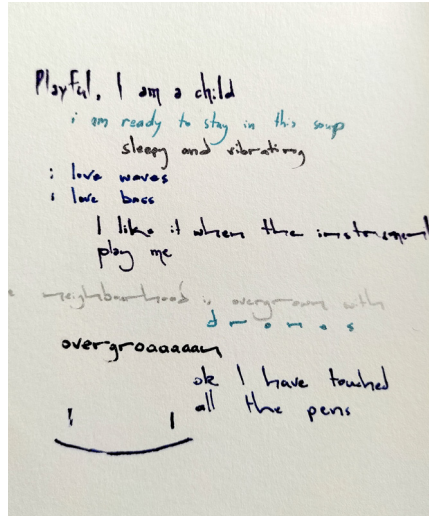 Playful, I am a child
i am ready to stay in this soup
sleepy and vibrating
i love waves
i love bass
I like it when the instrument
play me
neighbourhood is overgrown with
d r o n e s
overgroaaaaan
ok I have touched
all the pens